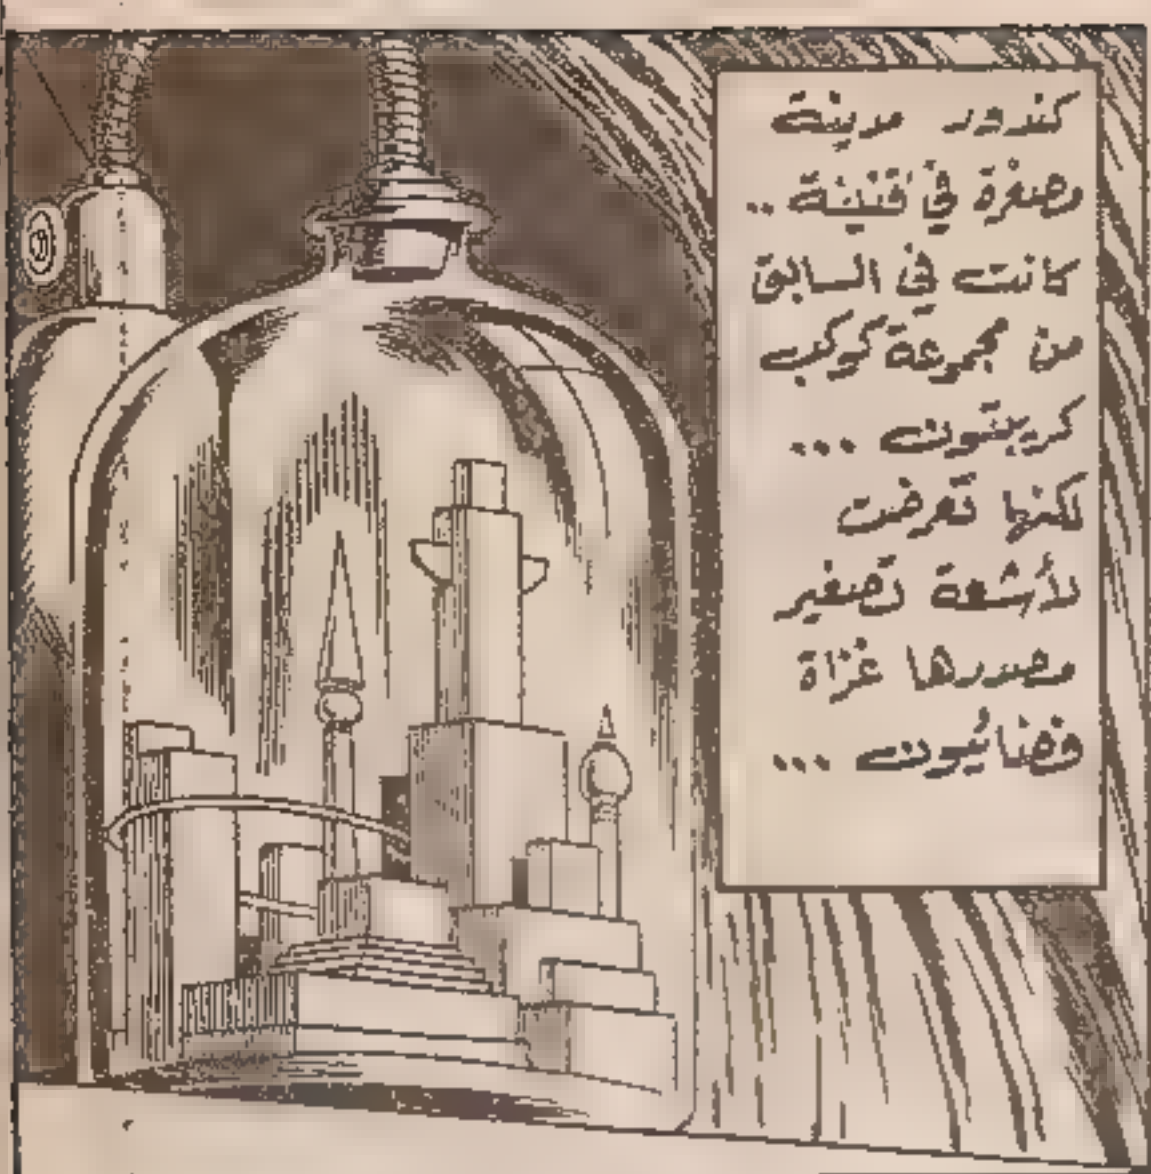 كندور مدينة
مصغرة في قنينة ..
كانت في السابق
من مجموعة كوكب
كريبتون ...
لكنها تعرضت
لأشعة تصغير
مصدرها غزاة
فضائيون ...